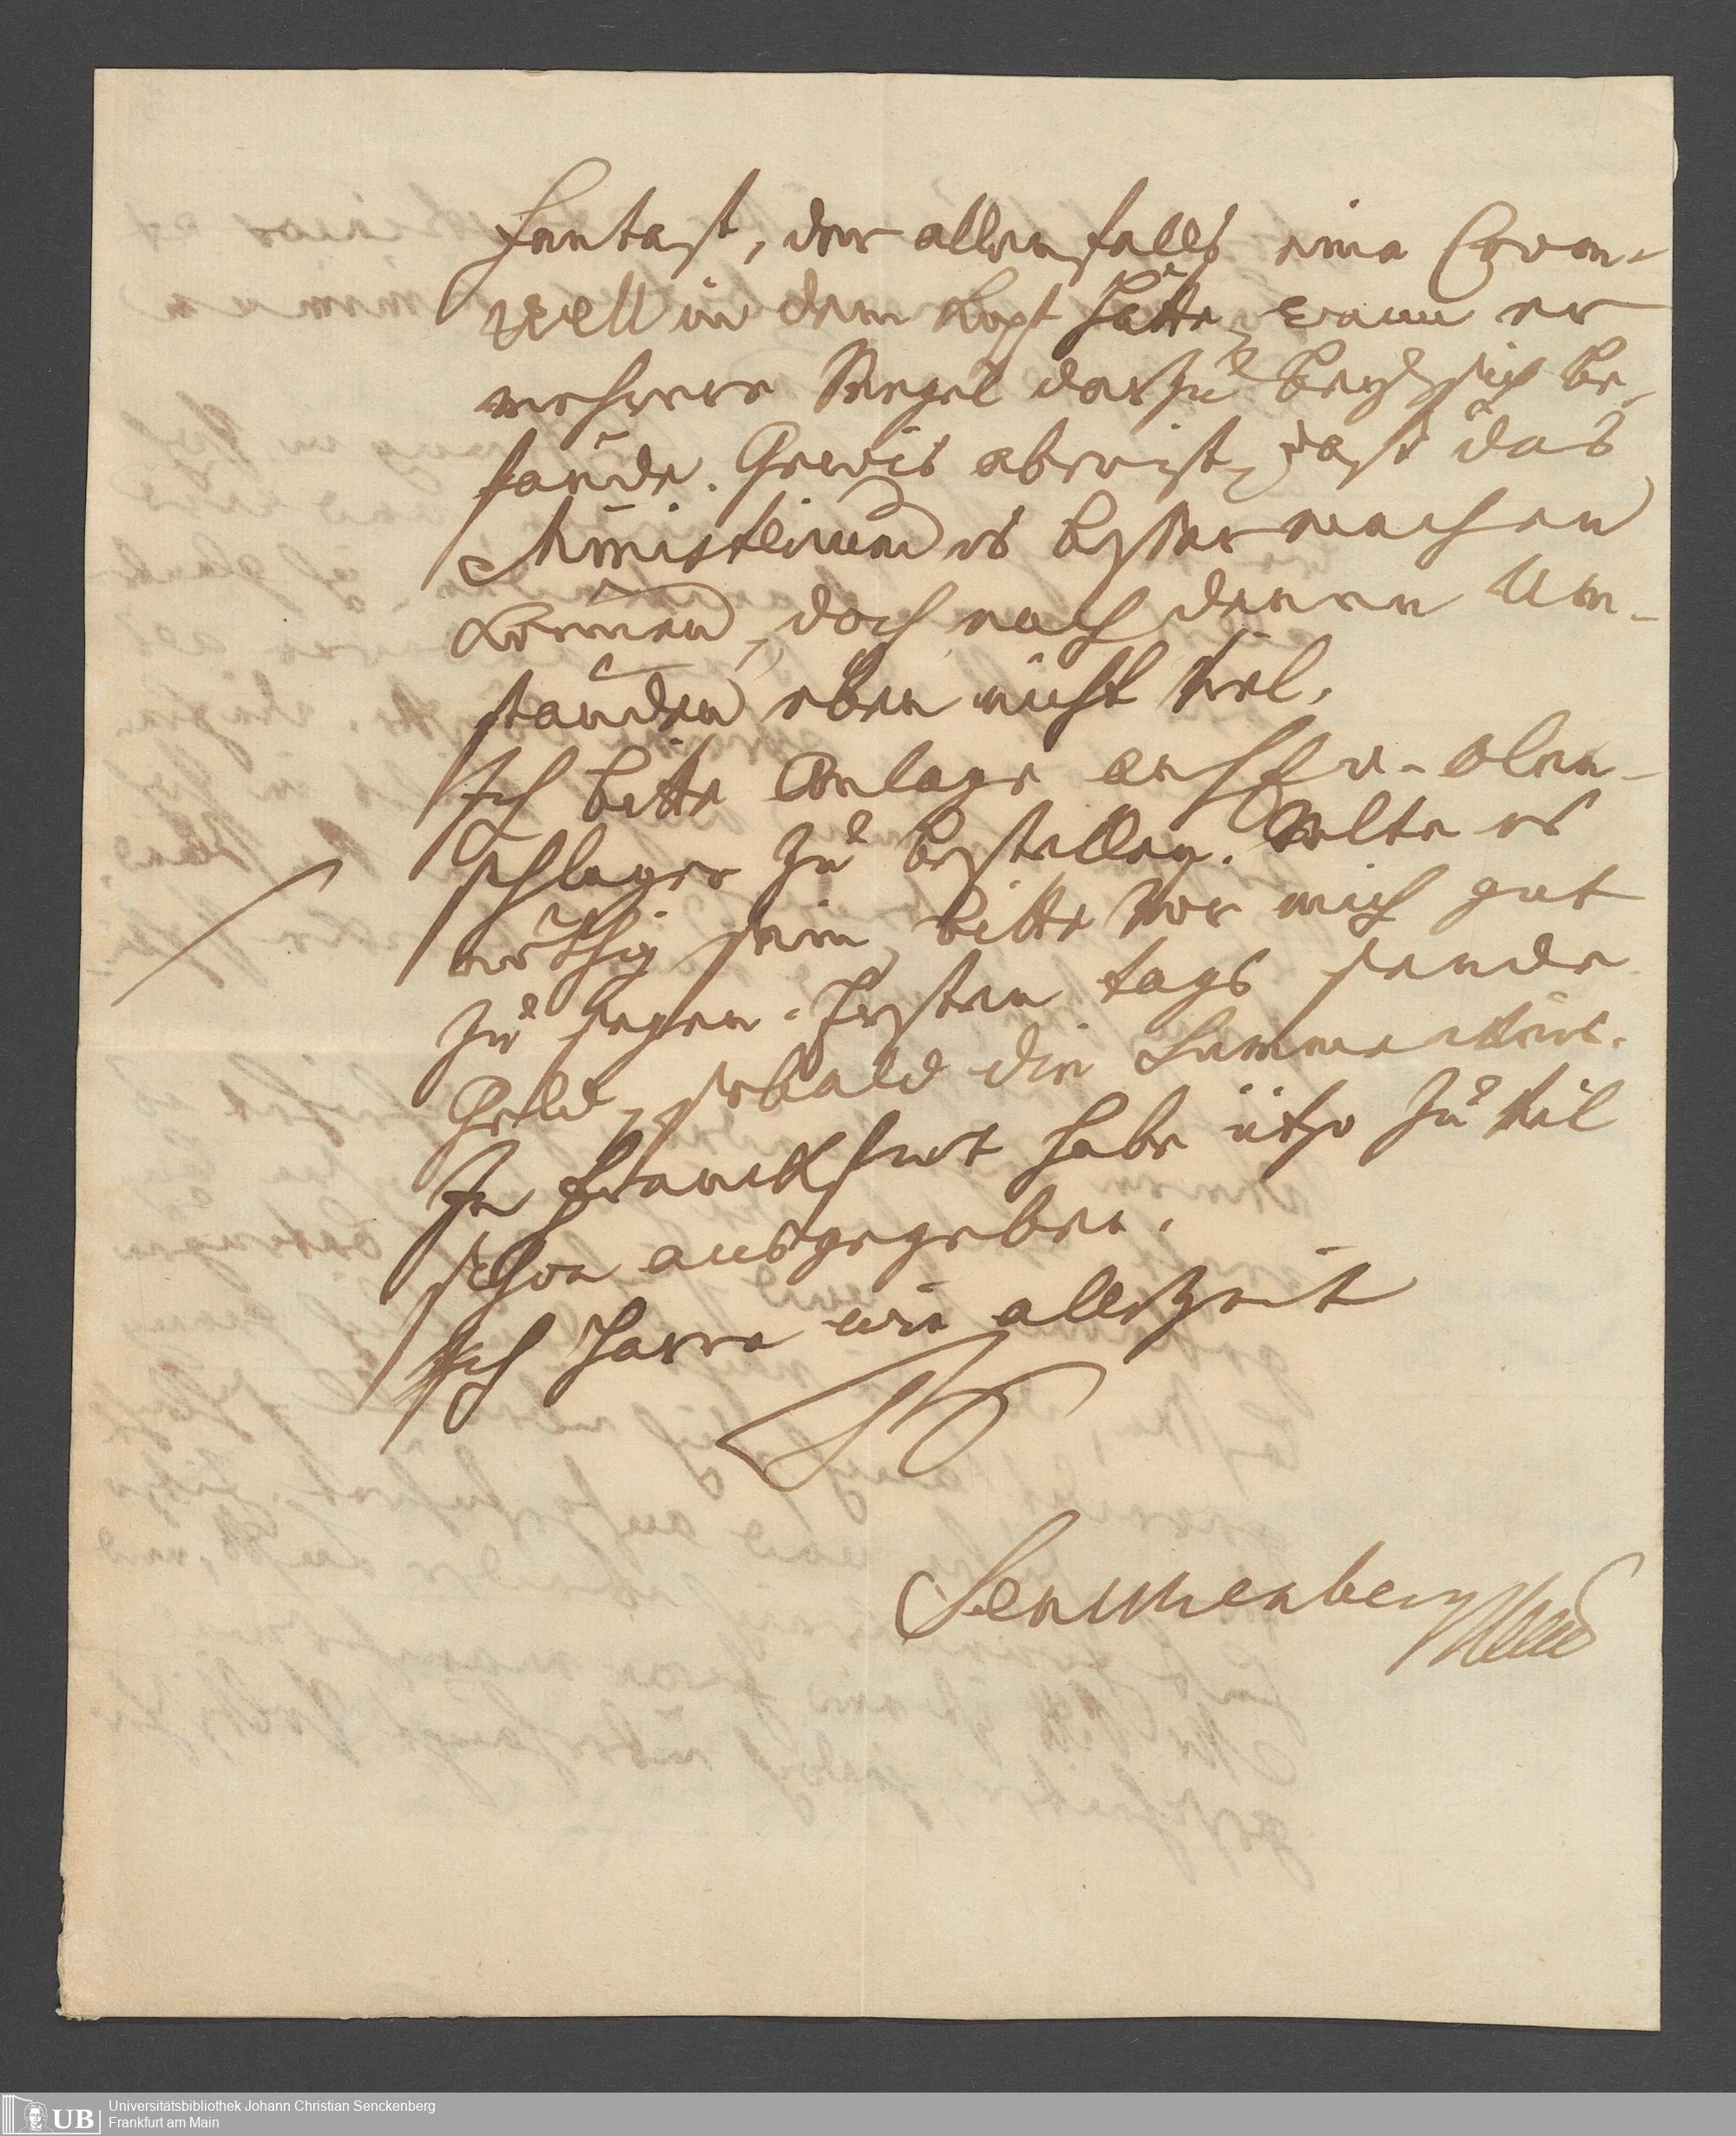 Fantast, der allenfalls eine Crom-
well in dem Kopf hätte, wann er
mehrere Siegel darzu bey sich be-
fande. Gewis aber ist, daß das
Ministerium es besser machen
können, doch nach denen Um-
standen eben nicht viel.
Ich bitte Anlage an H. v. Olen-
schlager zu bestellen. Solte es
nöthig sein, bitte vor mich gut
zu sagen. Ersten tags sende
Geld, sobald die Summe
In Franckfurt habe itzo zu viel
schon ausgegeben.
Ich harre wie allezeit
Senckenberg
Universitätsbibliothek Johann Christian Senckenberg
Frankfurt am Main
UB